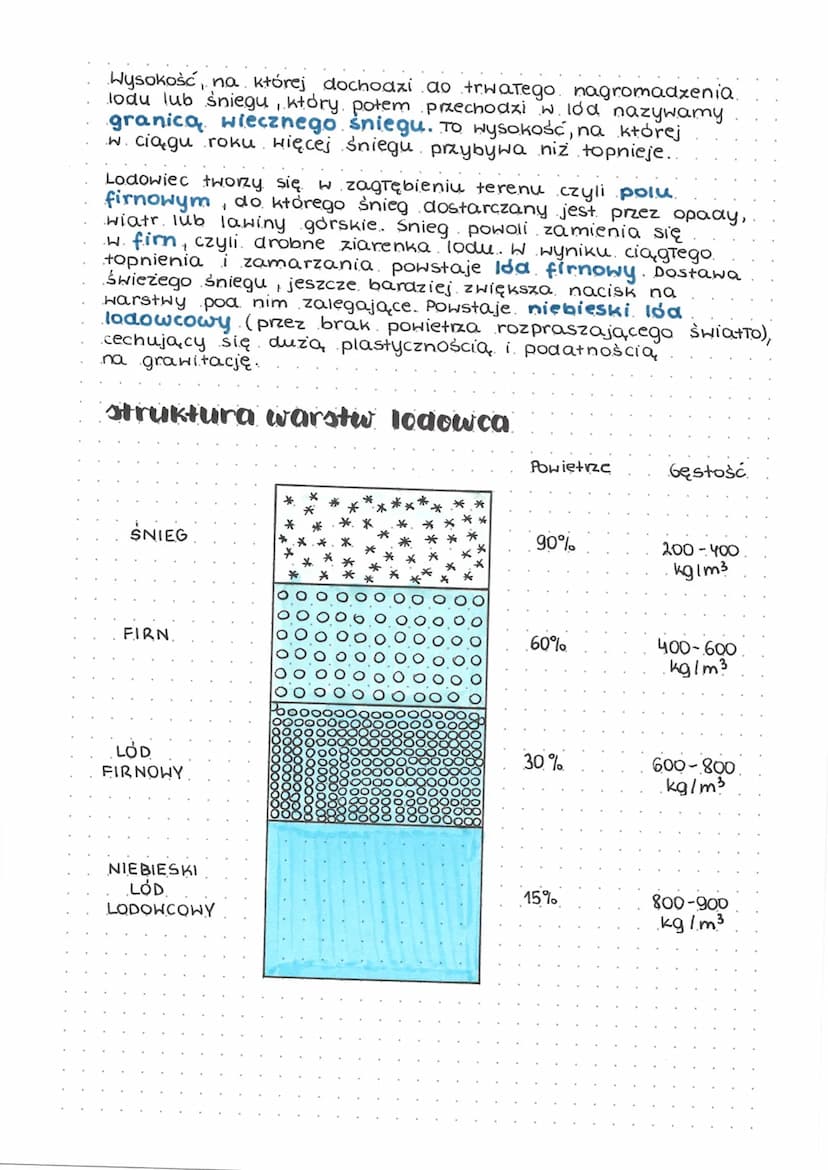 Wysokość, na której dochodzi do trwałego nagromadzenia
lodu lub śniegu, który potem przechodzi w lód nazywamy
granicą wiecznego śniegu. To wysokość, na której
w ciągu roku więcej śniegu przybywa niż topnieje.
Lodowiec tworzy się w zagłębieniu terenu czyli polu
firnowym, do którego śnieg dostarczany jest przez opady,
wiatr lub lawiny górskie. Śnieg powoli zamienia się
w firn, czyli drobne ziarenka lodu. W wyniku ciągłego
topnienia i zamarzania powstaje lód firnowy. Dostawa
świeżego śniegu, jeszcze bardziej zwiększa nacisk na
warstwy pod nim zalegające. Powstaje niebieski lód
lodowcowy (przez brak powietrza rozpraszającego światło),
cechujący się dużą plastycznością i podatnością
na grawitację.
struktura warstw lodowca
Powietrze Gęstość
ŚNIEG 90% 200-400
kg/m³
FIRN 60% 400-600
kg/m³
LÓD
FIRNOWY 30% 600-800
kg/m³
NIEBIESKI
LÓD
LODOWCOWY 15% 800-900
kg/m³